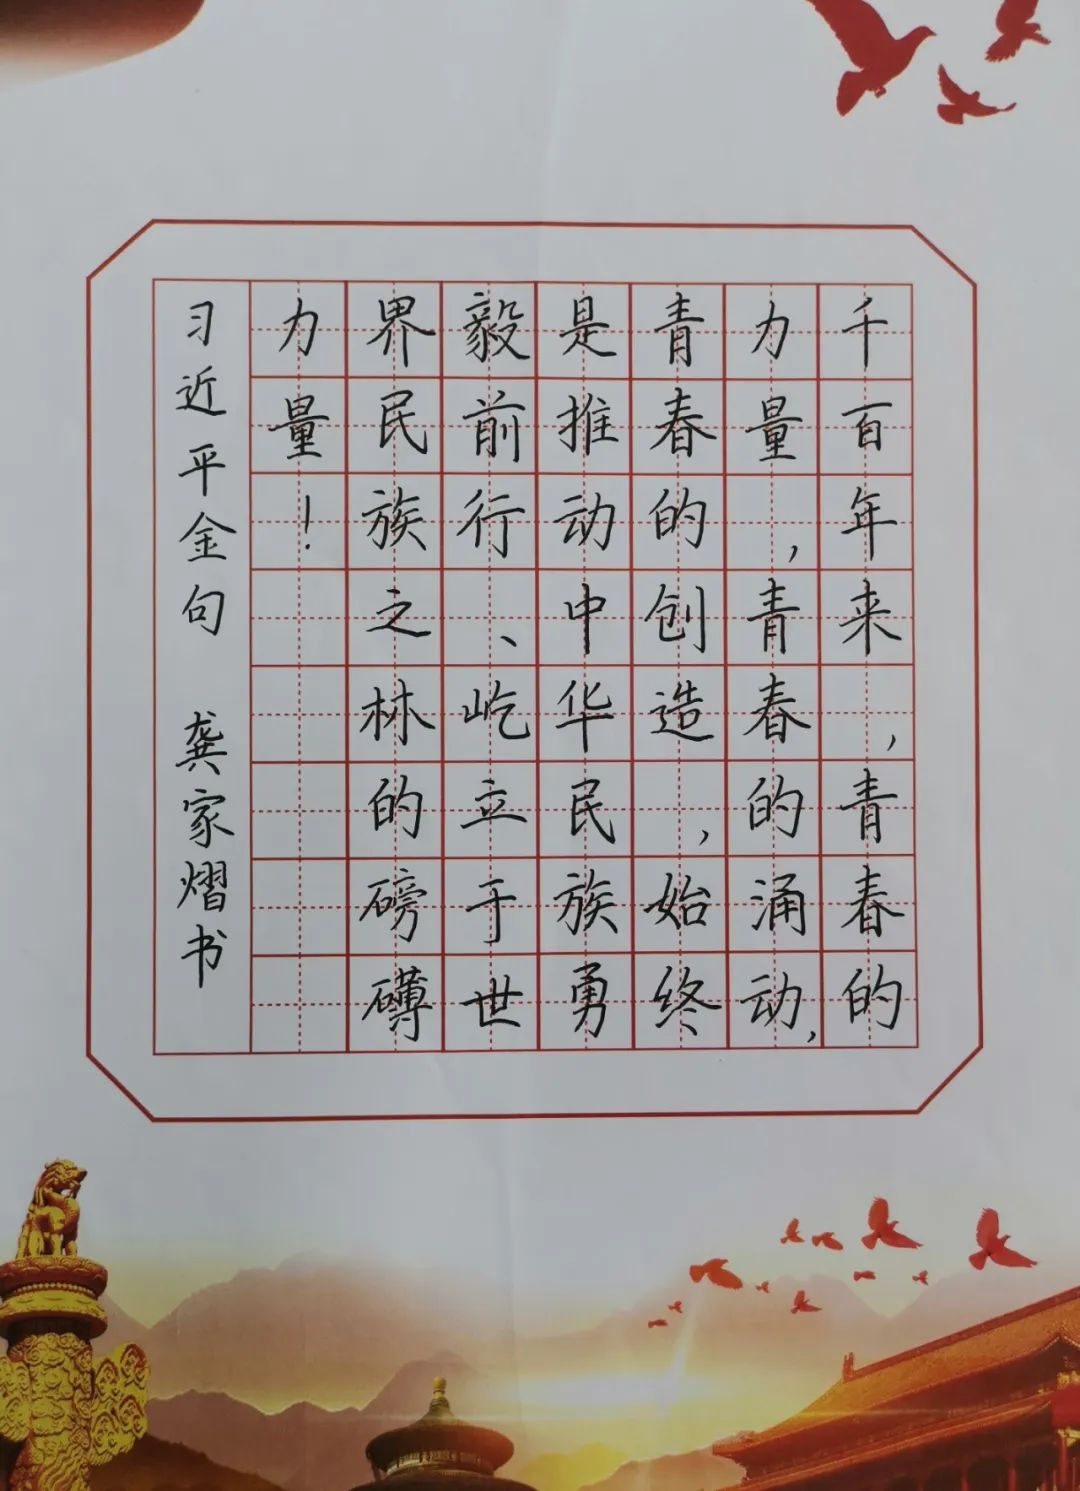 千百年来，青春的
力量，青春的涌动，
青春的创造，始终
是推动中华民族勇
毅前行、屹立于世
界民族之林的磅礴
力量！
习近平金句 龚家熠书